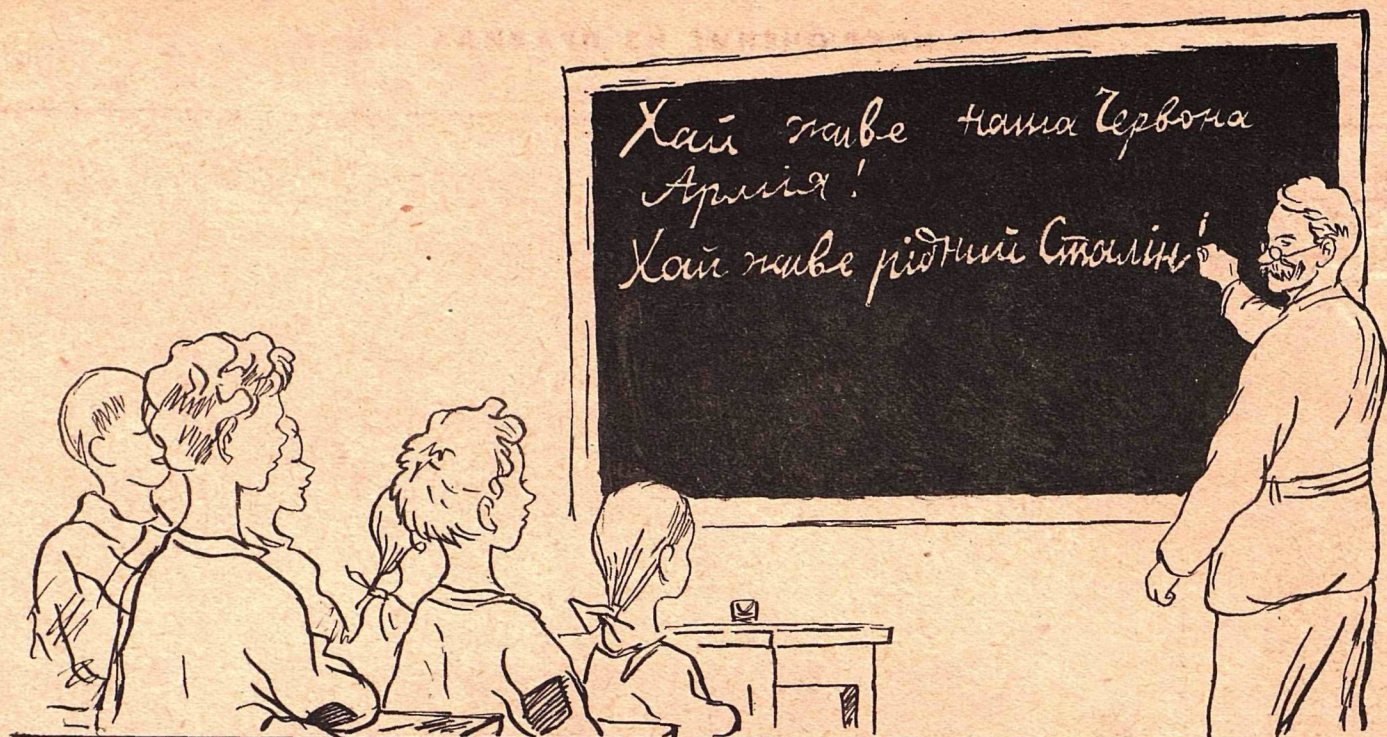 Хай живе наша Червона
Армія!
Хай живе рідний Сталін!